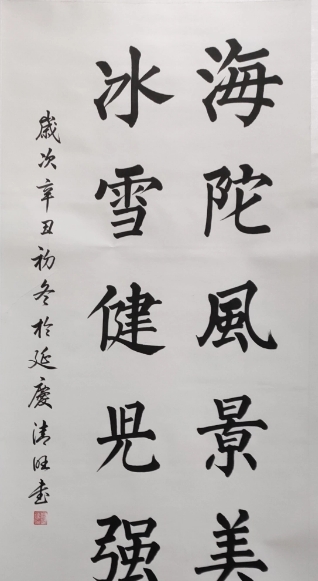 海陀風景美
冰雪健児强
歲次辛丑初冬於延慶清旺書